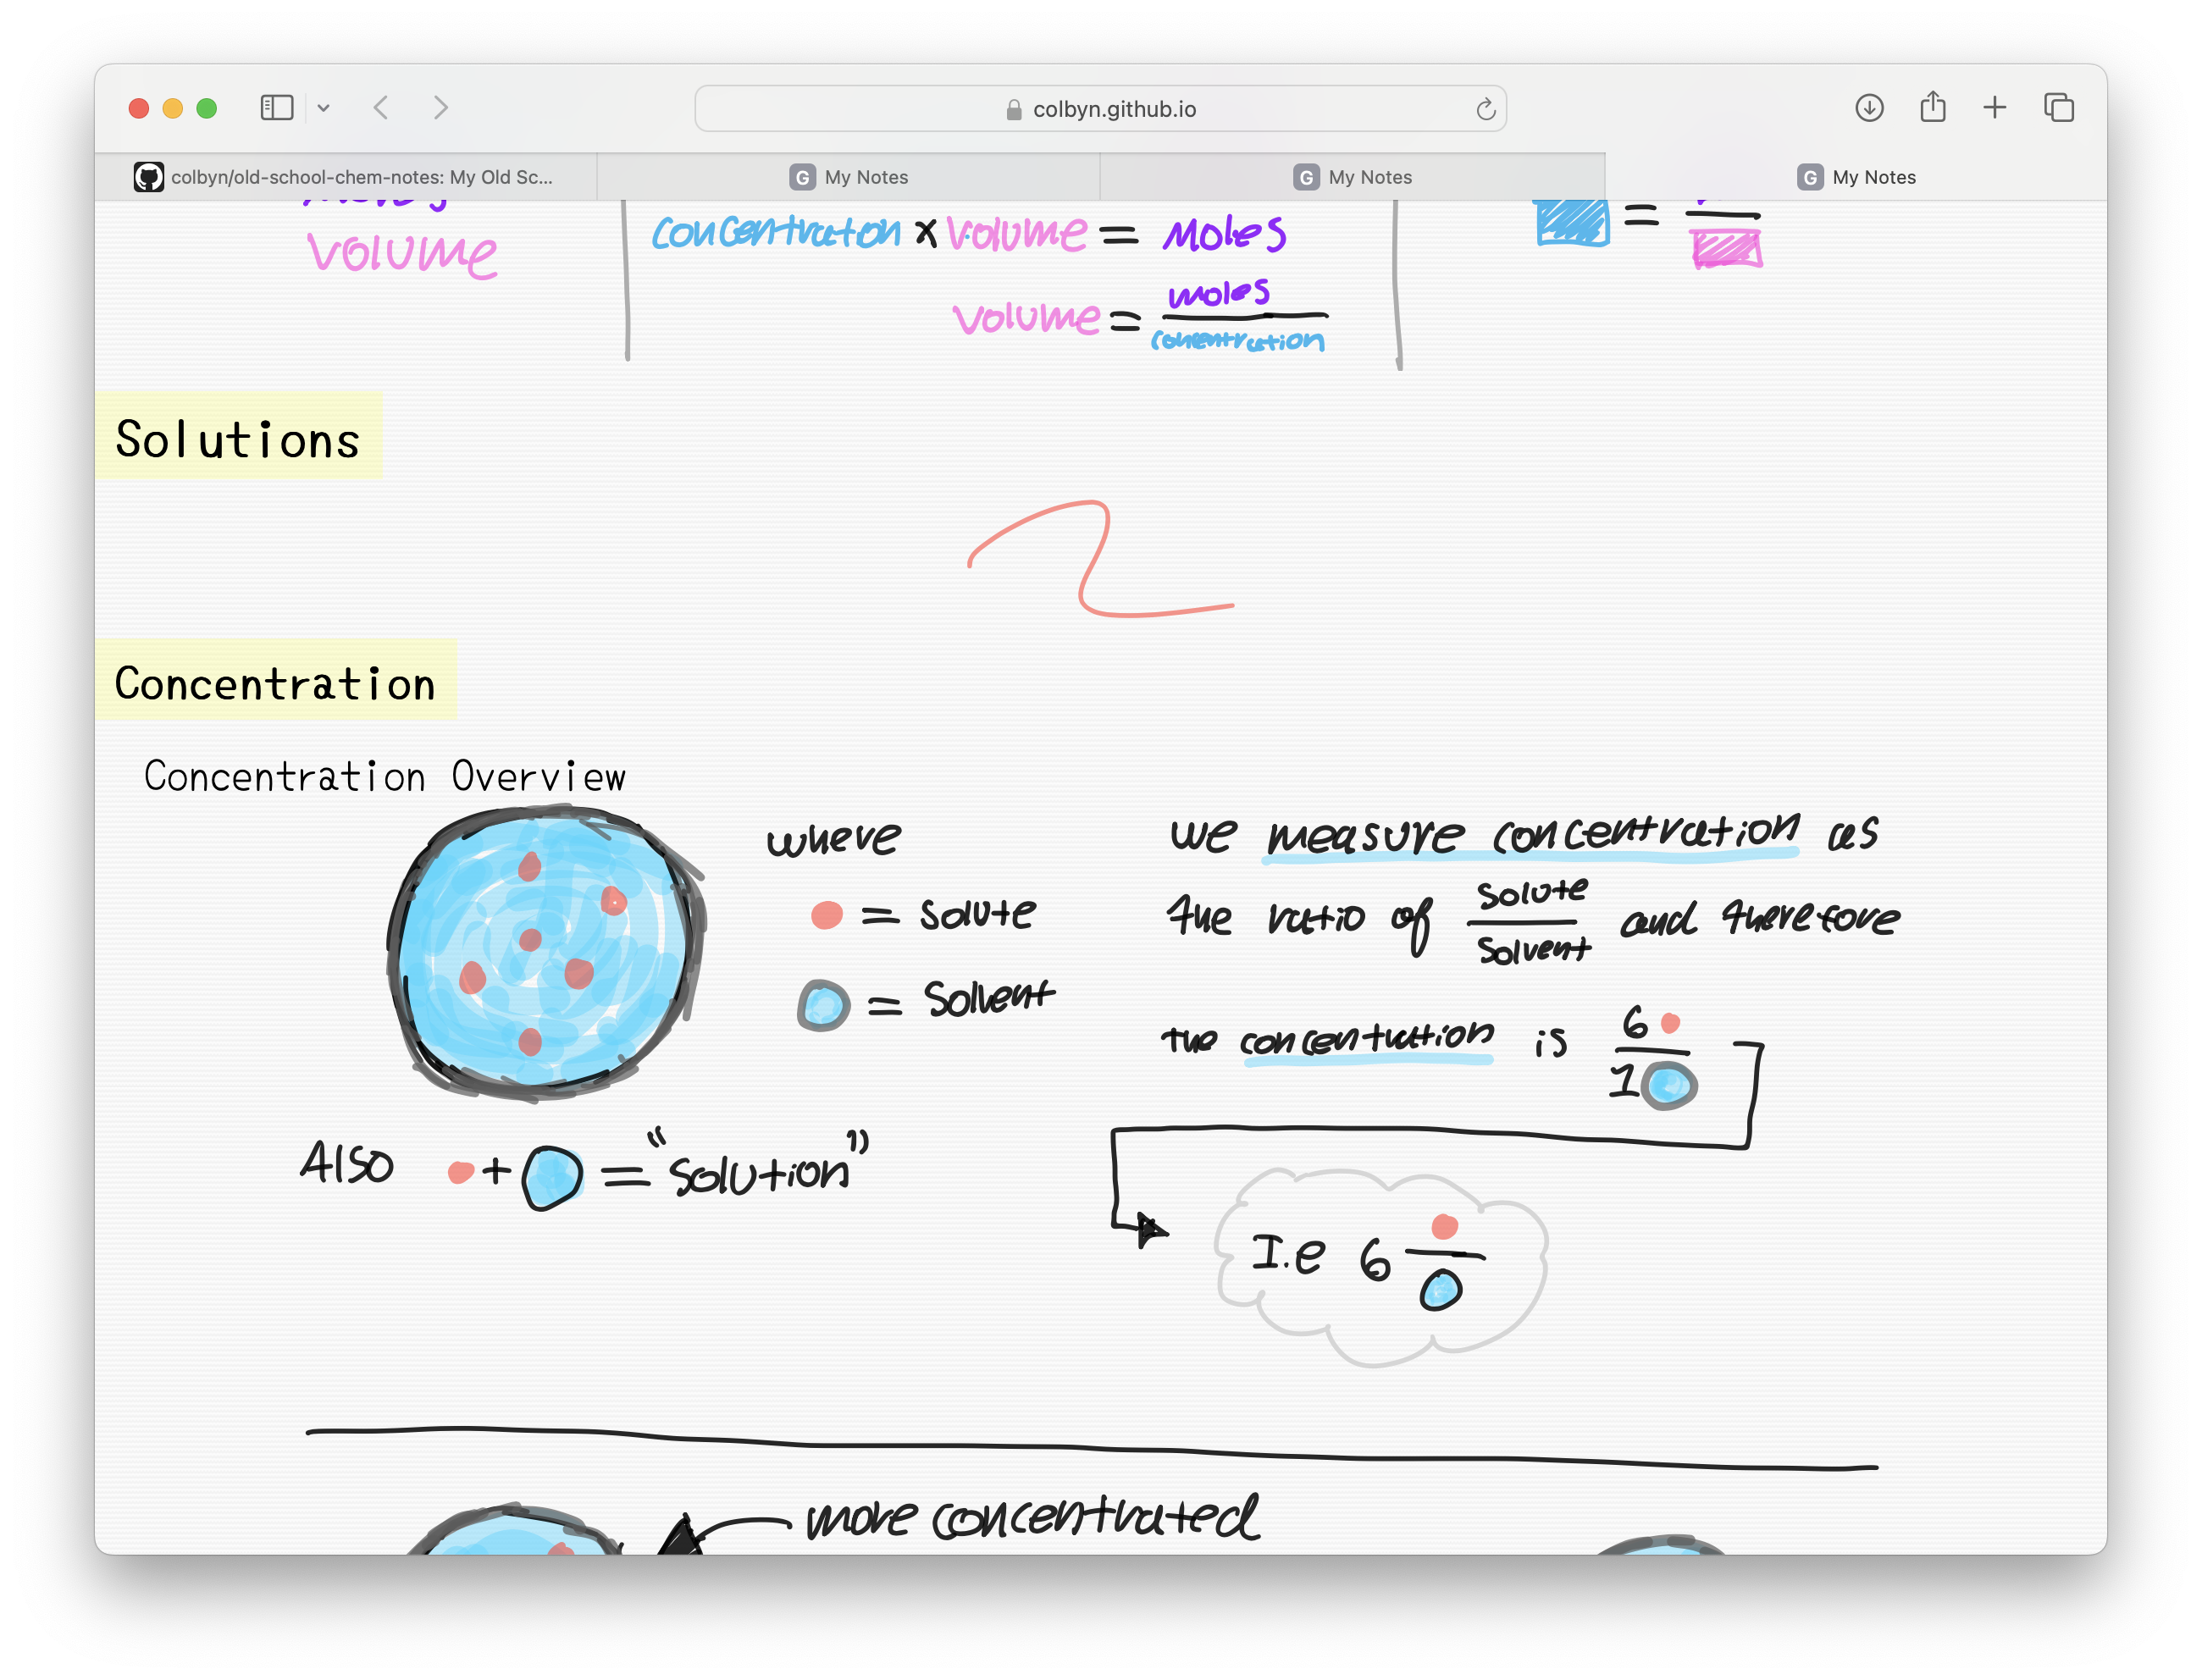 colbyn.github.io
colbyn/old-school-chem-notes: My Old Sc...
G My Notes
G My Notes
G My Notes
volume
concentration x volume = moles
=
volume = moles / concentration
Solutions
Concentration
Concentration Overview
where
= solute
= Solvent
Also + = "solution"
we measure concentration as
the ratio of solute / solvent and therefore
the concentration is 6 / 1
I.e 6
more concentrated